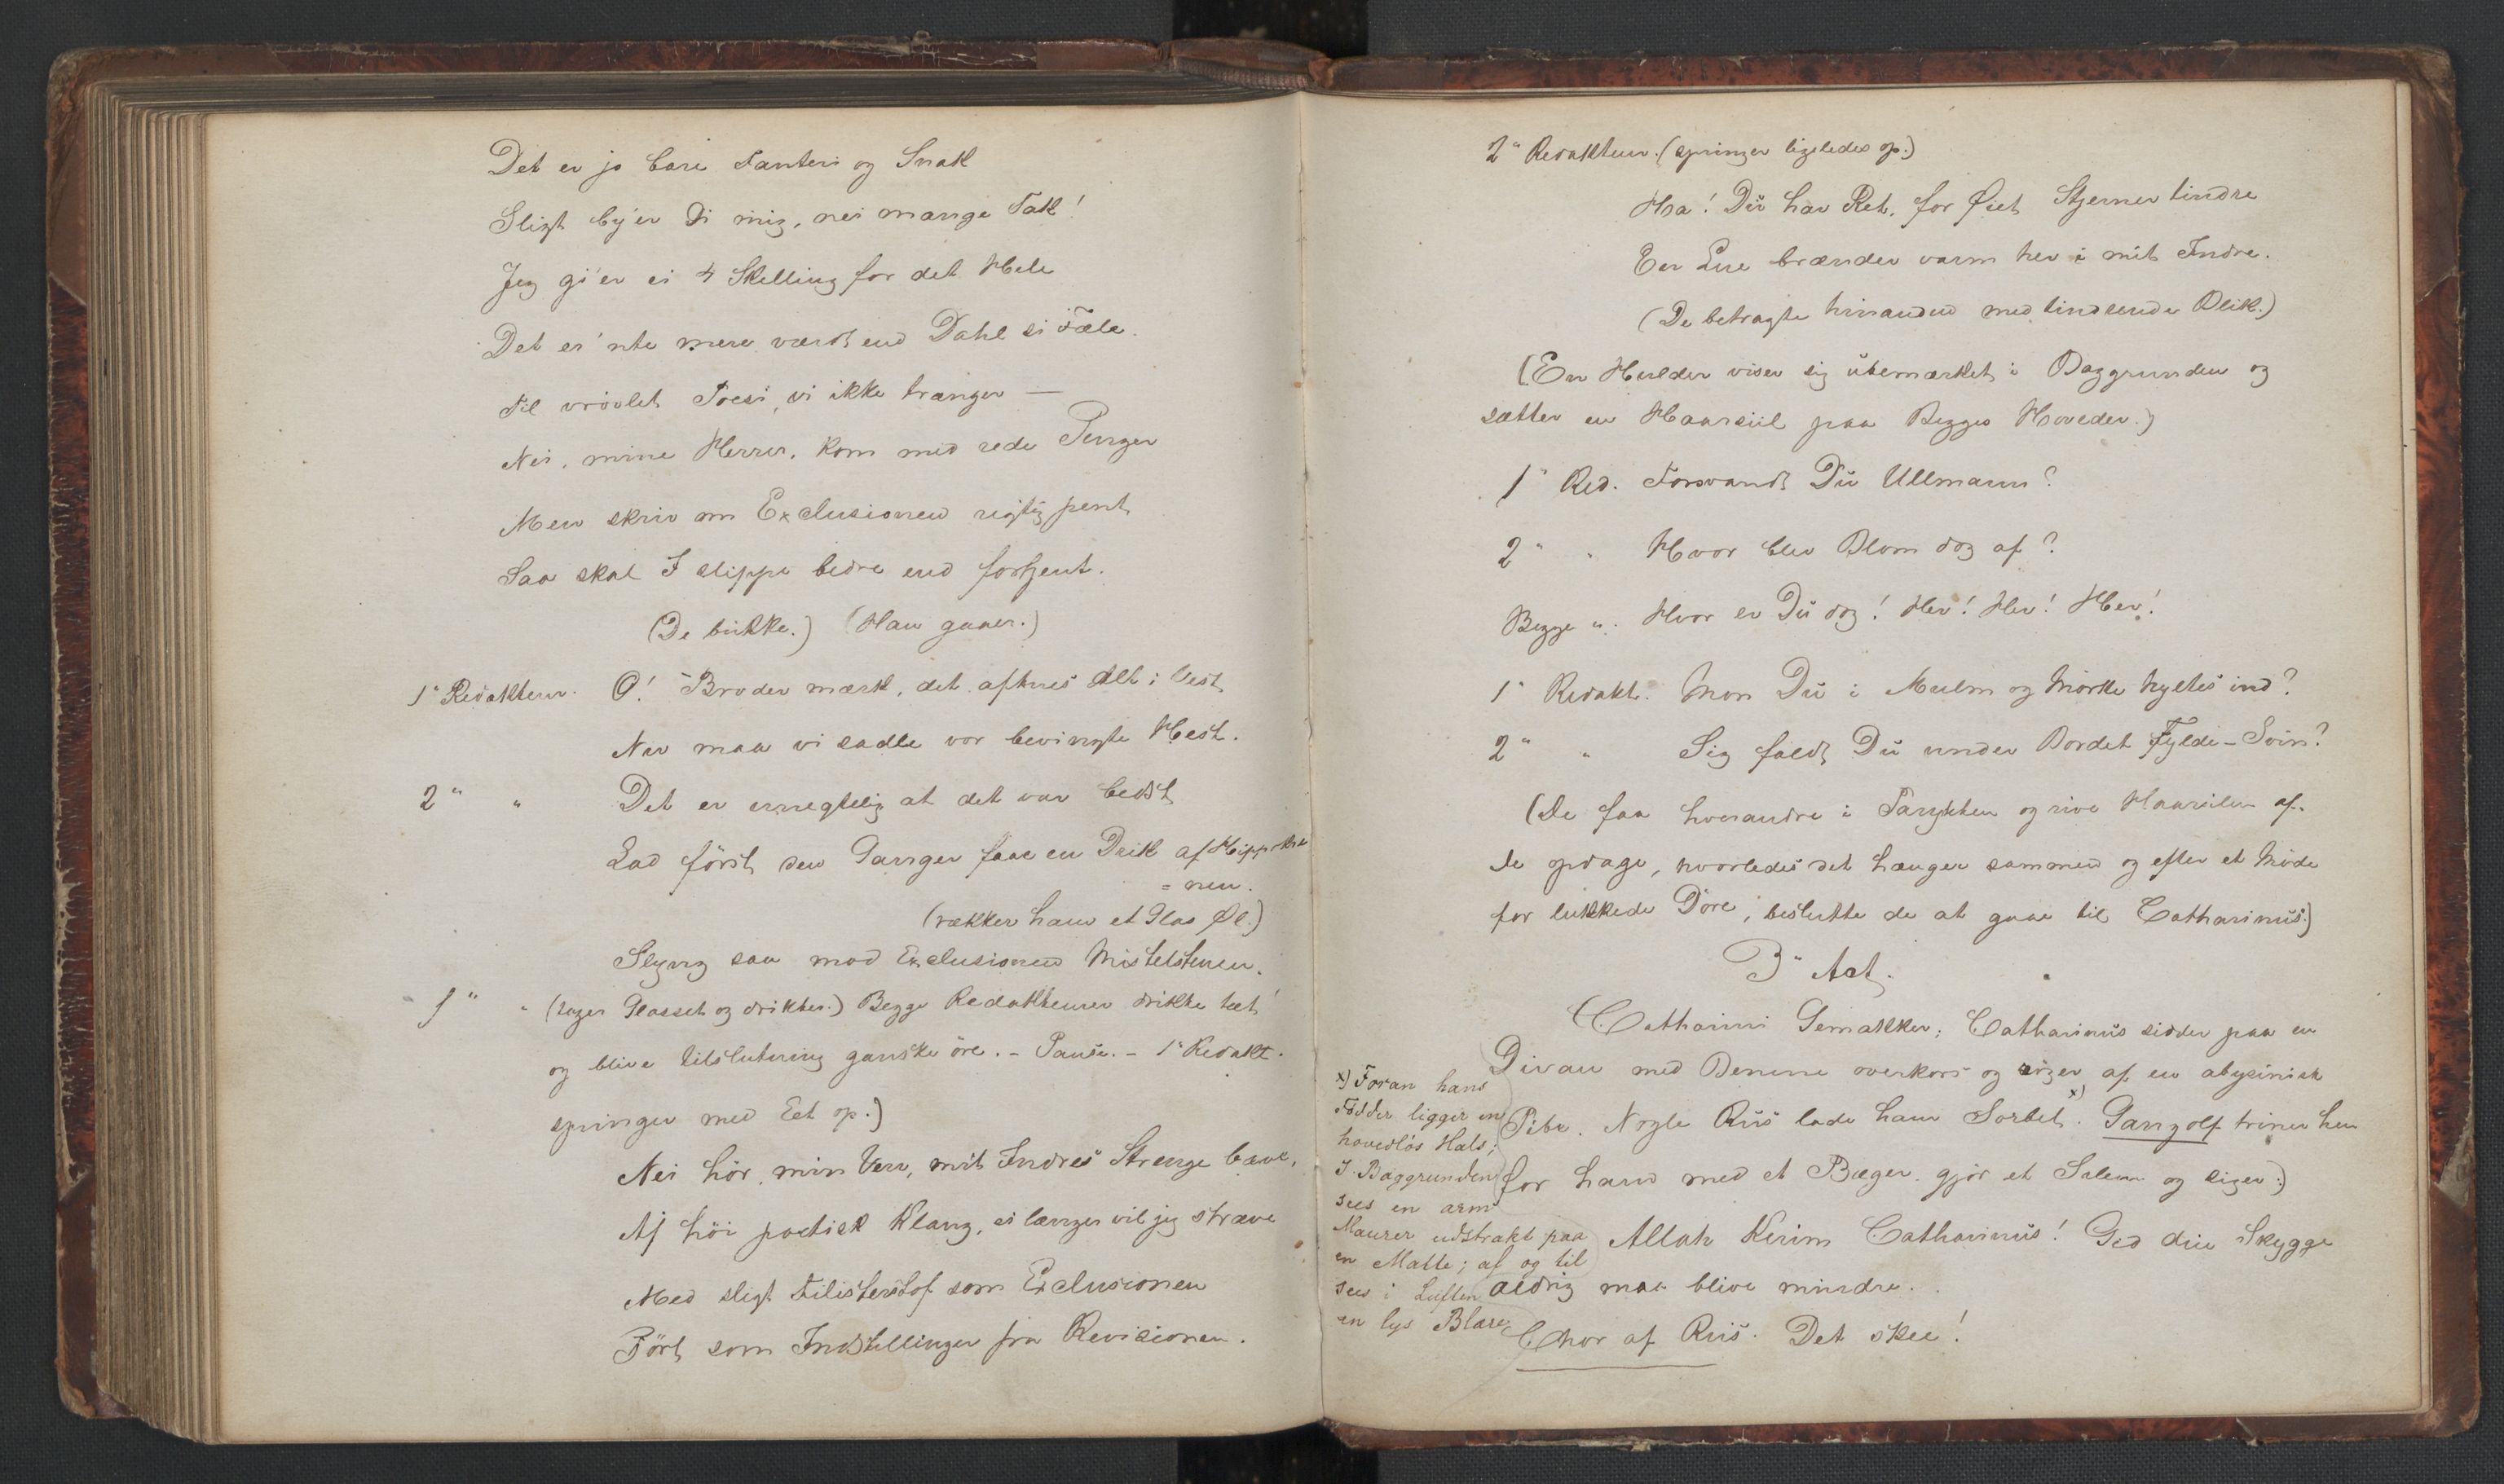 Det er jo bare Fanteri og Snak
Sligt by'er Di mig, nei mange Tak!
Jeg gi'er ei 4 Skilling for det Hele
Det er 'nte mere værdt end Dahl si Fæle.
Til vrövlet Poesi, vi ikke trænger —
Nei, mine Herrer, kom med rede Penger
Men skriv om Exclusionen rigtig pent,
Saa skal I slippe bedre end fortjent.
(De bukke.) (Han gaaer.)
1ª Redakteur. O! Broder mærk, det aftnes alt i Vest,
Nu maa vi sadle vor bevingte Hest.
2ª " Det er unegtelig at det var bedst,
Lad först den Ganger faae en Drik af Hippokre
= nen.
(rækker ham et Glas Øl.)
Slyng saa mod Exclusionen Mistelstenen.
1ª " (tager Glasset og drikker.) Begge Redakteurer drikke tæt
og blive tilslutning ganske öre. - Pause. - 1ª Redakt.
springer med Eet op.)
Nei hör, min Ven, mit Indres Strenge bæve,
Af höi poetisk Klang, ei længer vil jeg stræve
Med sligt Filisterstof som Exclusionen
Tört som Indstillinger fra Revisionen.
2ª Redakteur. (springer ligeledes op.)
Ha! Du har Ret, for Øiet Stjerner tindre
En Lue brænder varm her i mit Indre.
(De betragte hinanden med tindrende Blik.)
(En Hulder viser sig ubemærket i Baggrunden og
sætter en Haarsiil paa Begges Hoveder.)
1ª Red. Forsvandt Du Ullmann?
2ª " Hvor blev Blom dog af?
Begge ". Hvor er Du dog! Her! Her! Her!
1ª Redakt. Mon Du i Mulm og Mörke hyltes ind?
2ª " Sig faldt Du under Bordet Fylde-Sviin?
(De faa hverandre i Parykken og rive Haarsilen af.
De opdage, hvorledes det hænger sammen og efter et Möde
for lukkede Döre, beslutte de at gaae til Catharinus.)
3ª Act.
(Catharini Gemakker; Catharinus sidder paa en
Divan med Benene overkors og röger af en abyssinisk
Pibe. Nogle Rus lade ham Sorbet. x) Gangolf triner hen
for ham med et Bæger, gjör et Salem og siger:)
Allah Kerim Catharinus! Gid din Skygge
aldrig maa blive mindre.
Chor af Rus. Det skee!
x) Foran hans
Födder ligger en
hovedlös Hals;
I Baggrunden
sees en arm
Maurer udstrakt paa
en Matte; af og til
sees i Luften
en lys Blare